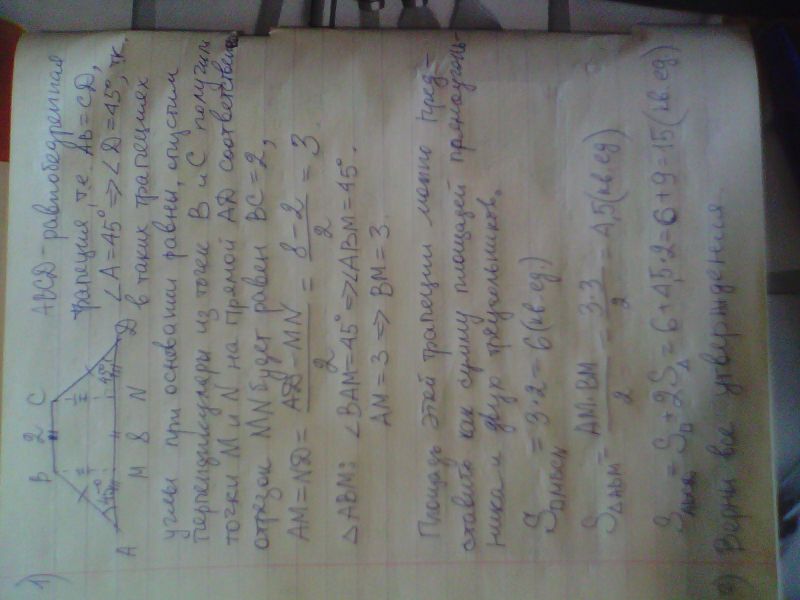 1)
B 2 C
45° 45°
A M 8 N D
ABCD - равнобедренная
трапеция, т.е. AB = CD,
∠A = 45° ⇒ ∠D = 45°, т.к.
в таких трапециях
углы при основании равны, опустим
перпендикуляры из точек B и C получим
точки M и N на прямой AD соответственно
отрезок MN будет равен BC = 2,
AM = ND = (AD - MN)/2 = (8 - 2)/2 = 3.
△ABM: ∠BAM = 45° ⇒ ∠ABM = 45°.
AM = 3 ⇒ BM = 3.
Площадь этой трапеции можно пред-
ставить как сумму площадей прямоуголь-
ника и двух треугольников.
S▭MBCN = 3·2 = 6 (кв.ед.)
S△ABM = AM·BM/2 = 3·3/2 = 4,5 (кв.ед)
S = S▭ + 2S△ = 6 + 4,5·2 = 6 + 9 = 15 (кв.ед)
2) Верны все утверждения